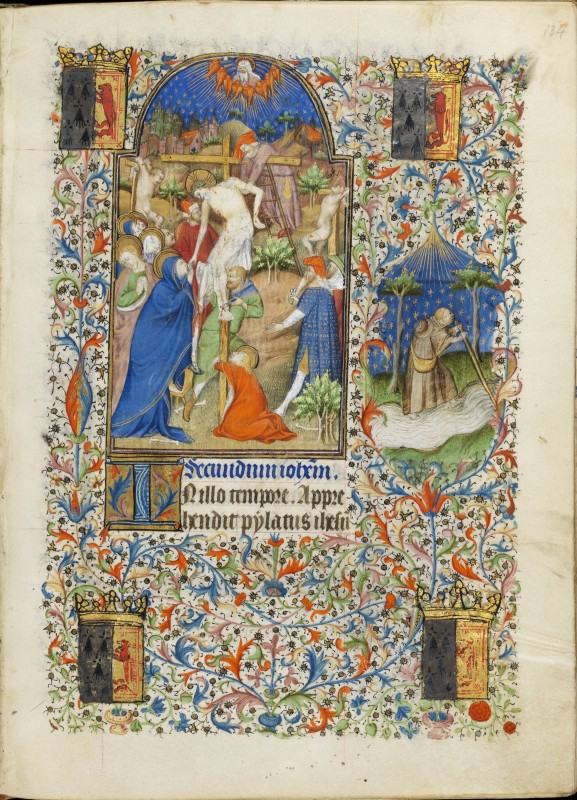 Secundum ioh̄em.
IN illo tempore. Appre
hendit pylatus ihesū